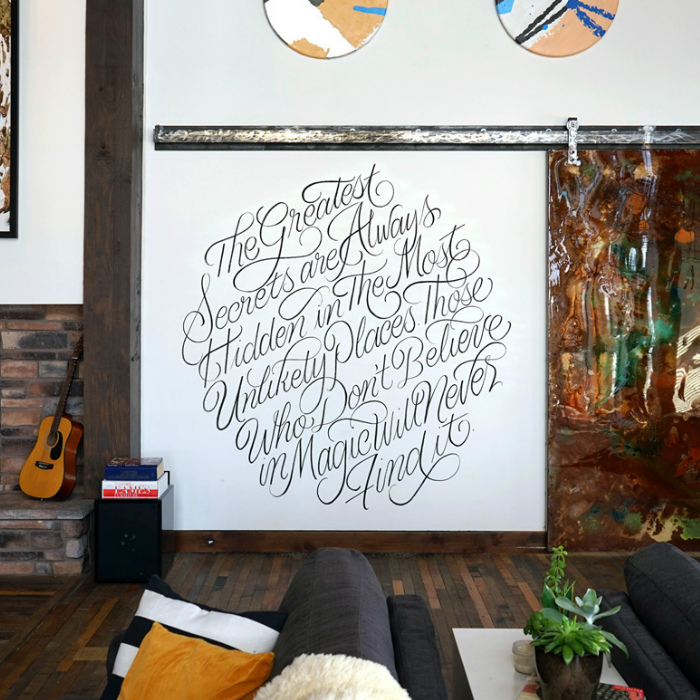 The Greatest
Secrets are Always
Hidden in The Most
Unlikely Places Those
Who Don't Believe
in Magic Will Never
Find it.